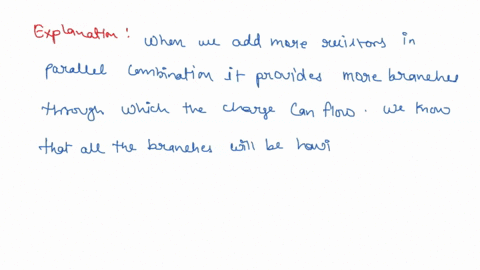 Explanation : When we add more resistors in
parallel combination it provides more branches
through which the charge can flow . we know
that all the branches will be havi